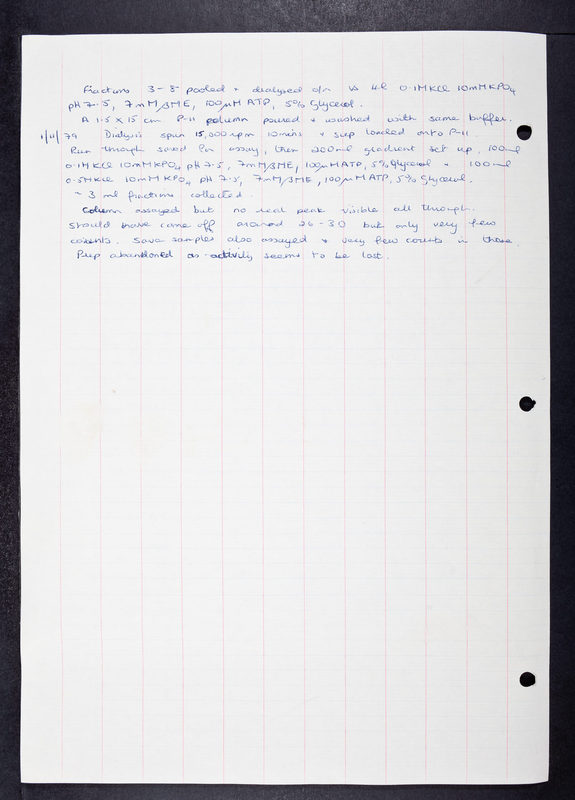 Fractions 3-8 pooled + dialysed o/n vs 4l 0.1M KCl 10mM KPO4
pH 7.5, 7mM βME, 100μM ATP, 5% Glycerol.
A 1.5 x 15 cm P-11 column poured + washed with same buffer.
79 Dialysis spun 15,000 rpm 10mins + sup loaded onto P-11.
Run through saved for assay, then 200ml gradient set up, 100ml
0.1M KCl 10mM KPO4 pH 7.5, 7mM βME, 100μM ATP, 5% Glycerol + 100ml
0.5M KCl 10mM KPO4 pH 7.5, 7mM βME, 100μM ATP, 5% Glycerol.
~ 3 ml fractions collected.
Column assayed but no real peak visible all through.
Should have come off around 26-30 but only very few
counts. Save samples also assayed + very few counts in these.
Prep abandoned as activity seems to be lost.